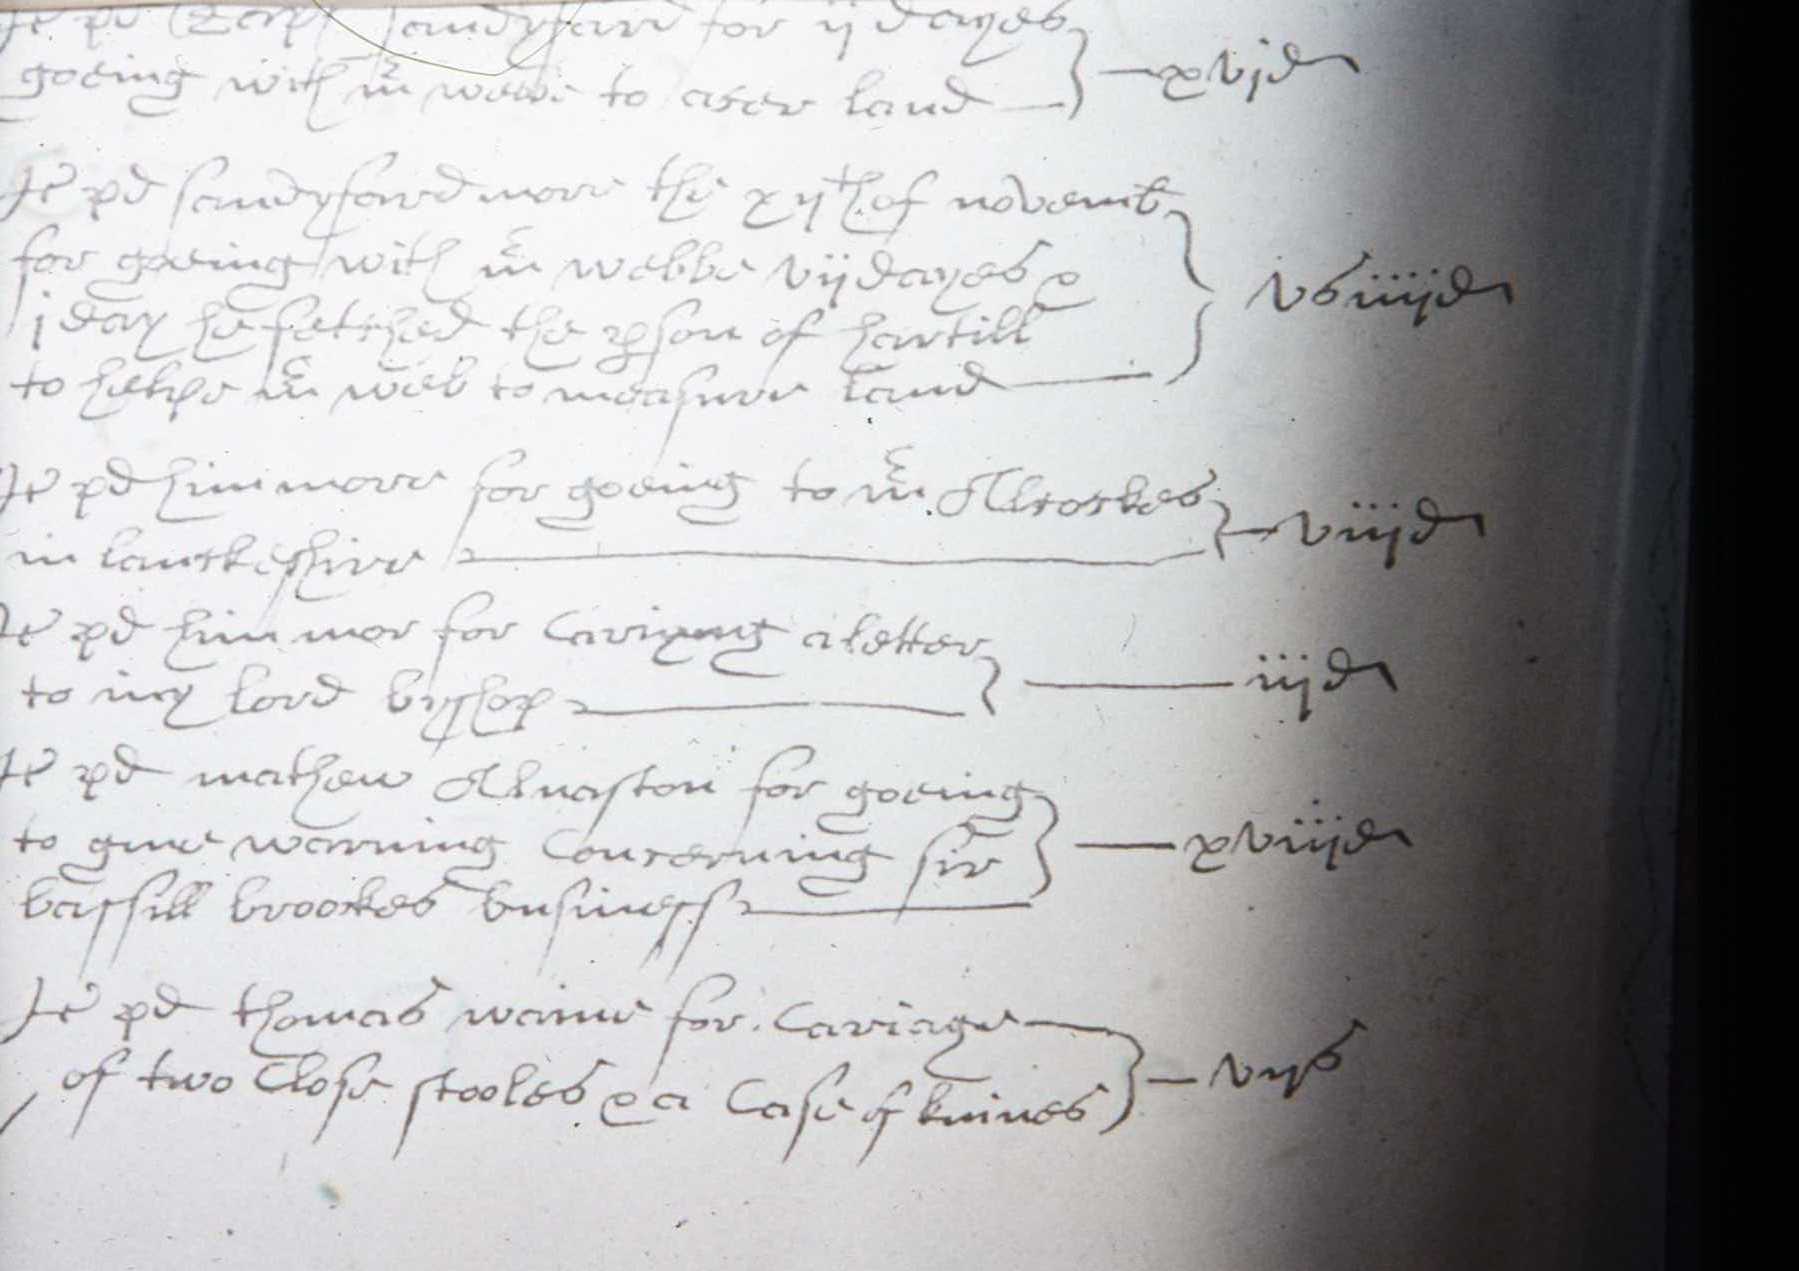 It pd Raph sandyford for ij dayes
goeing with mr webe to aser land xvjd
It pd sandyford more the xijth of novemb
for goeing with mr webbe vij dayes &
j day he fetched the pson of hartill vs iiijd
to helpe mr web to measure land
It pd him more for goeing to mr Alcockes
in lanckeshire viijd
It pd him mor for Cariyng a letter
to my lord byshop iijd
It pd mathew Alvaston for goeing
to giue warning Concerning sir xviijd
bassill brookes business
It pd thomas waine for Cariage
of two Close stooles & a Case of kniues vijs